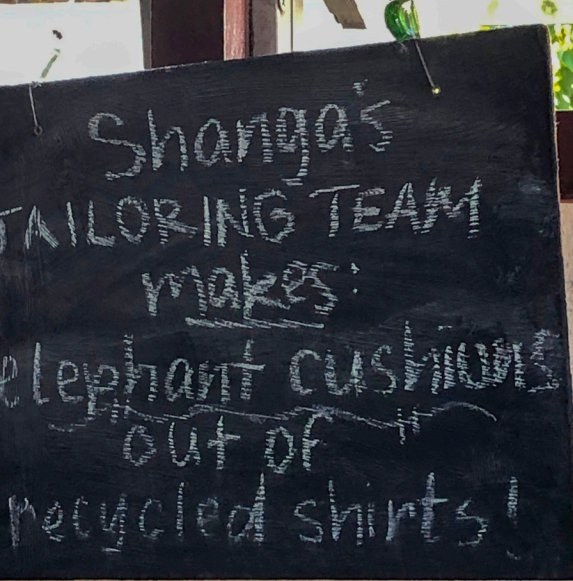 Shanga's
TAILORING TEAM
makes:
elephant cushions
out of
recycled shirts!